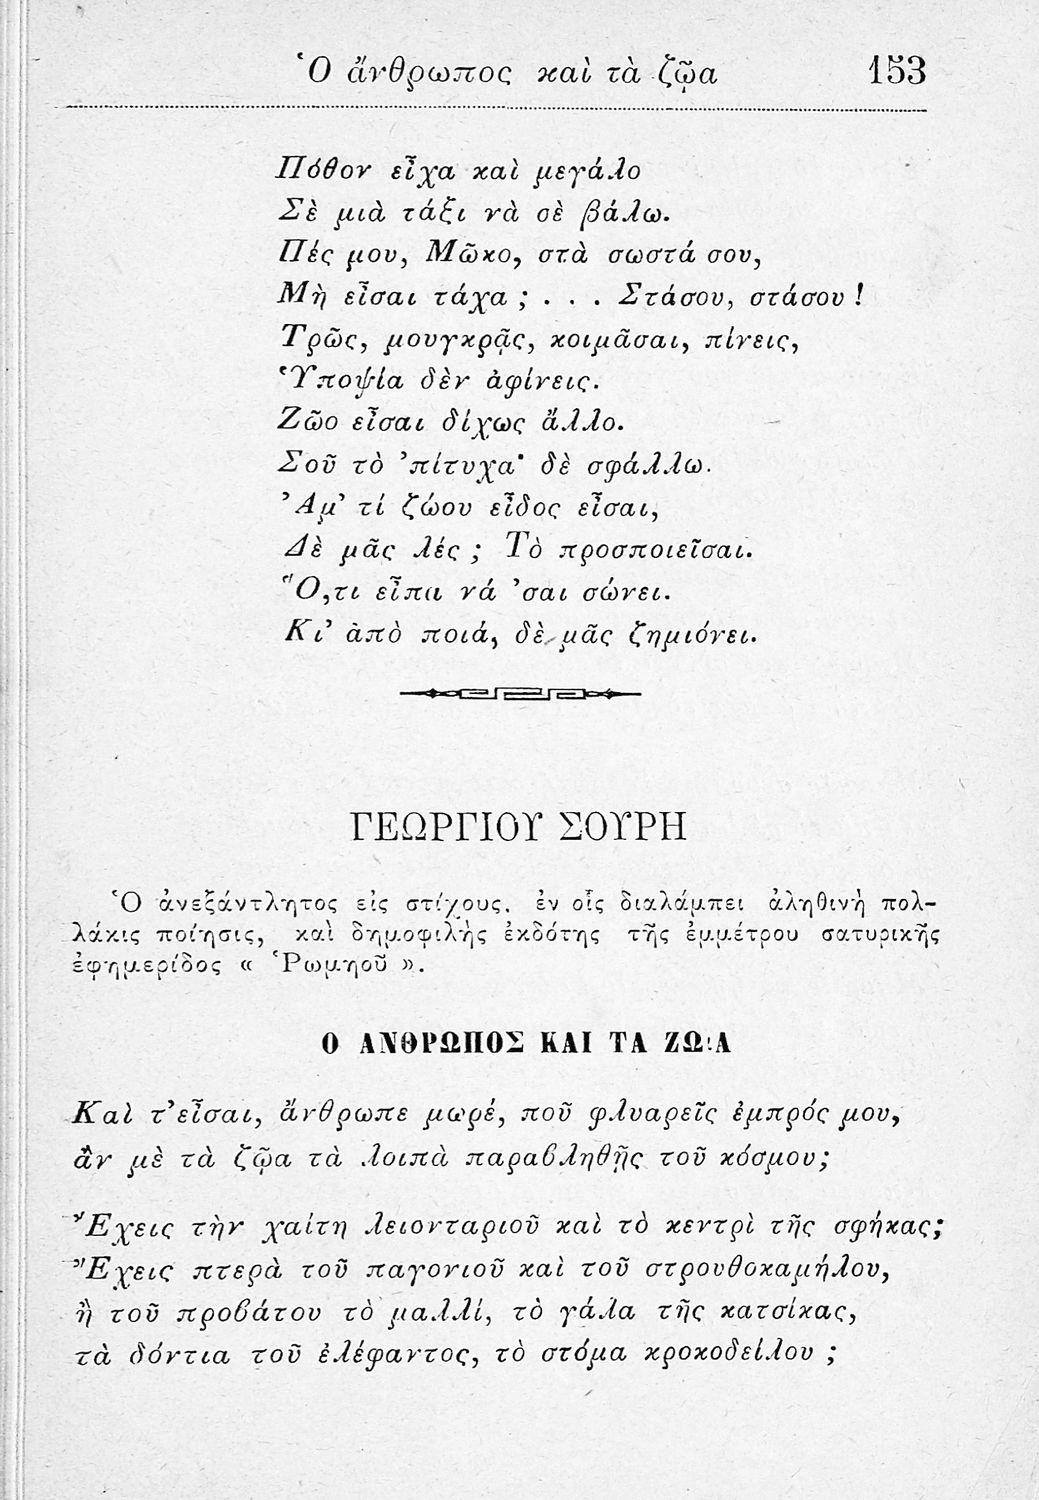 Ὁ ἄνθρωπος καὶ τὰ ζῷα 153
Πόθον εἶχα καὶ μεγάλο
Σὲ μιὰ τάξι νὰ σὲ βάλω.
Πές μου, Μῶκο, στὰ σωστά σου,
Μὴ εἶσαι τάχα ; . . . Στάσου, στάσου !
Τρῶς, μουγκρᾷς, κοιμᾶσαι, πίνεις,
Ὑποψία δὲν ἀφίνεις.
Ζῶο εἶσαι δίχως ἄλλο.
Σοῦ τὸ ’πίτυχα· δὲ σφάλλω.
Ἀμ’ τί ζώου εἶδος εἶσαι,
Δὲ μᾶς λές ; Τὸ προσποιεῖσαι.
Ὅ,τι εἶπα νά ’σαι σώνει.
Κι’ ἀπὸ ποιά, δὲ μᾶς ζημιόνει.
ΓΕΩΡΓΙΟΥ ΣΟΥΡΗ
Ὁ ἀνεξάντλητος εἰς στίχους, ἐν οἷς διαλάμπει ἀληθινὴ πολ-
λάκις ποίησις, καὶ δημοφιλὴς ἐκδότης τῆς ἐμμέτρου σατυρικῆς
ἐφημερίδος « Ῥωμηοῦ ».
Ο ΑΝΘΡΩΠΟΣ ΚΑΙ ΤΑ ΖΩΑ
Καὶ τ’εἶσαι, ἄνθρωπε μωρέ, ποῦ φλυαρεῖς ἐμπρός μου,
ἂν μὲ τὰ ζῷα τὰ λοιπὰ παραβληθῇς τοῦ κόσμου;
Ἔχεις τὴν χαίτη λειονταριοῦ καὶ τὸ κεντρὶ τῆς σφήκας;
Ἔχεις πτερὰ τοῦ παγονιοῦ καὶ τοῦ στρουθοκαμήλου,
ἢ τοῦ προβάτου τὸ μαλλί, τὸ γάλα τῆς κατσίκας,
τὰ δόντια τοῦ ἐλέφαντος, τὸ στόμα κροκοδείλου ;